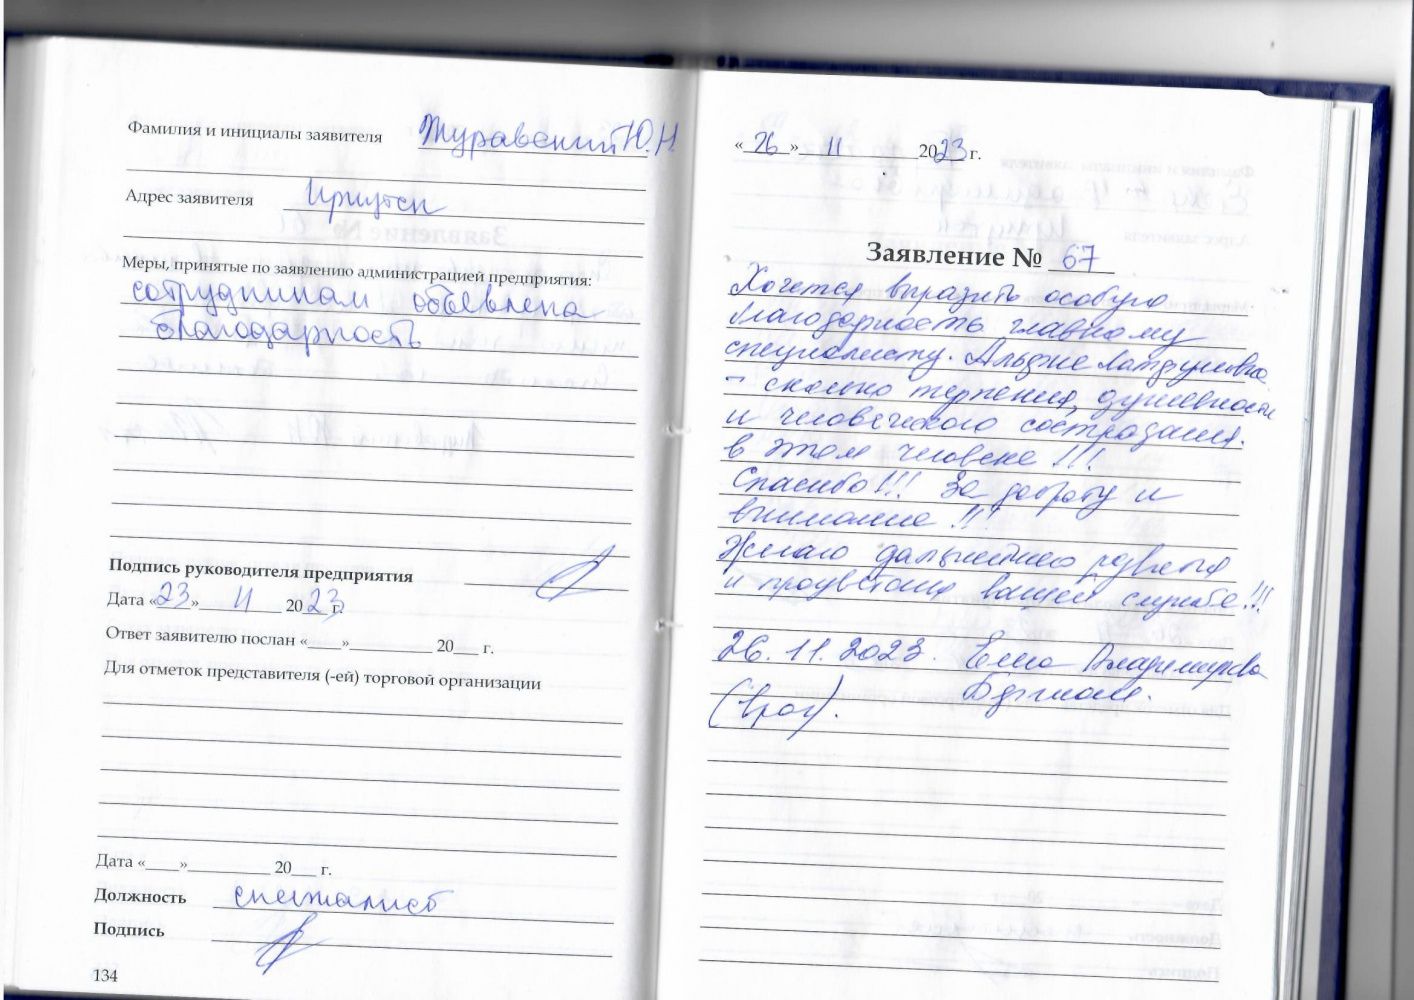 Фамилия и инициалы заявителя Журавский Ю.Н.
Адрес заявителя Иркутск
Меры, принятые по заявлению администрацией предприятия:
сотрудникам объявлена
благодарность
Подпись руководителя предприятия
Дата «23» 11 2023 г.
Ответ заявителю послан «____»__________ 20___ г.
Для отметок представителя (-ей) торговой организации
Дата «____»__________ 20___ г.
Должность специалист
Подпись
134
«26» 11 2023 г.
Заявление № 67
Хочется выразить особую
благодарность главному
специалисту.
– сколько терпения, душевности
и человеческого сострадания.
в этом человеке !!!
Спасибо!!! За доброту и
внимание !!!
Желаю дальнейшего развития
и процветания вашей службе!!!
26.11.2023. Елена Владимировна
(врач).